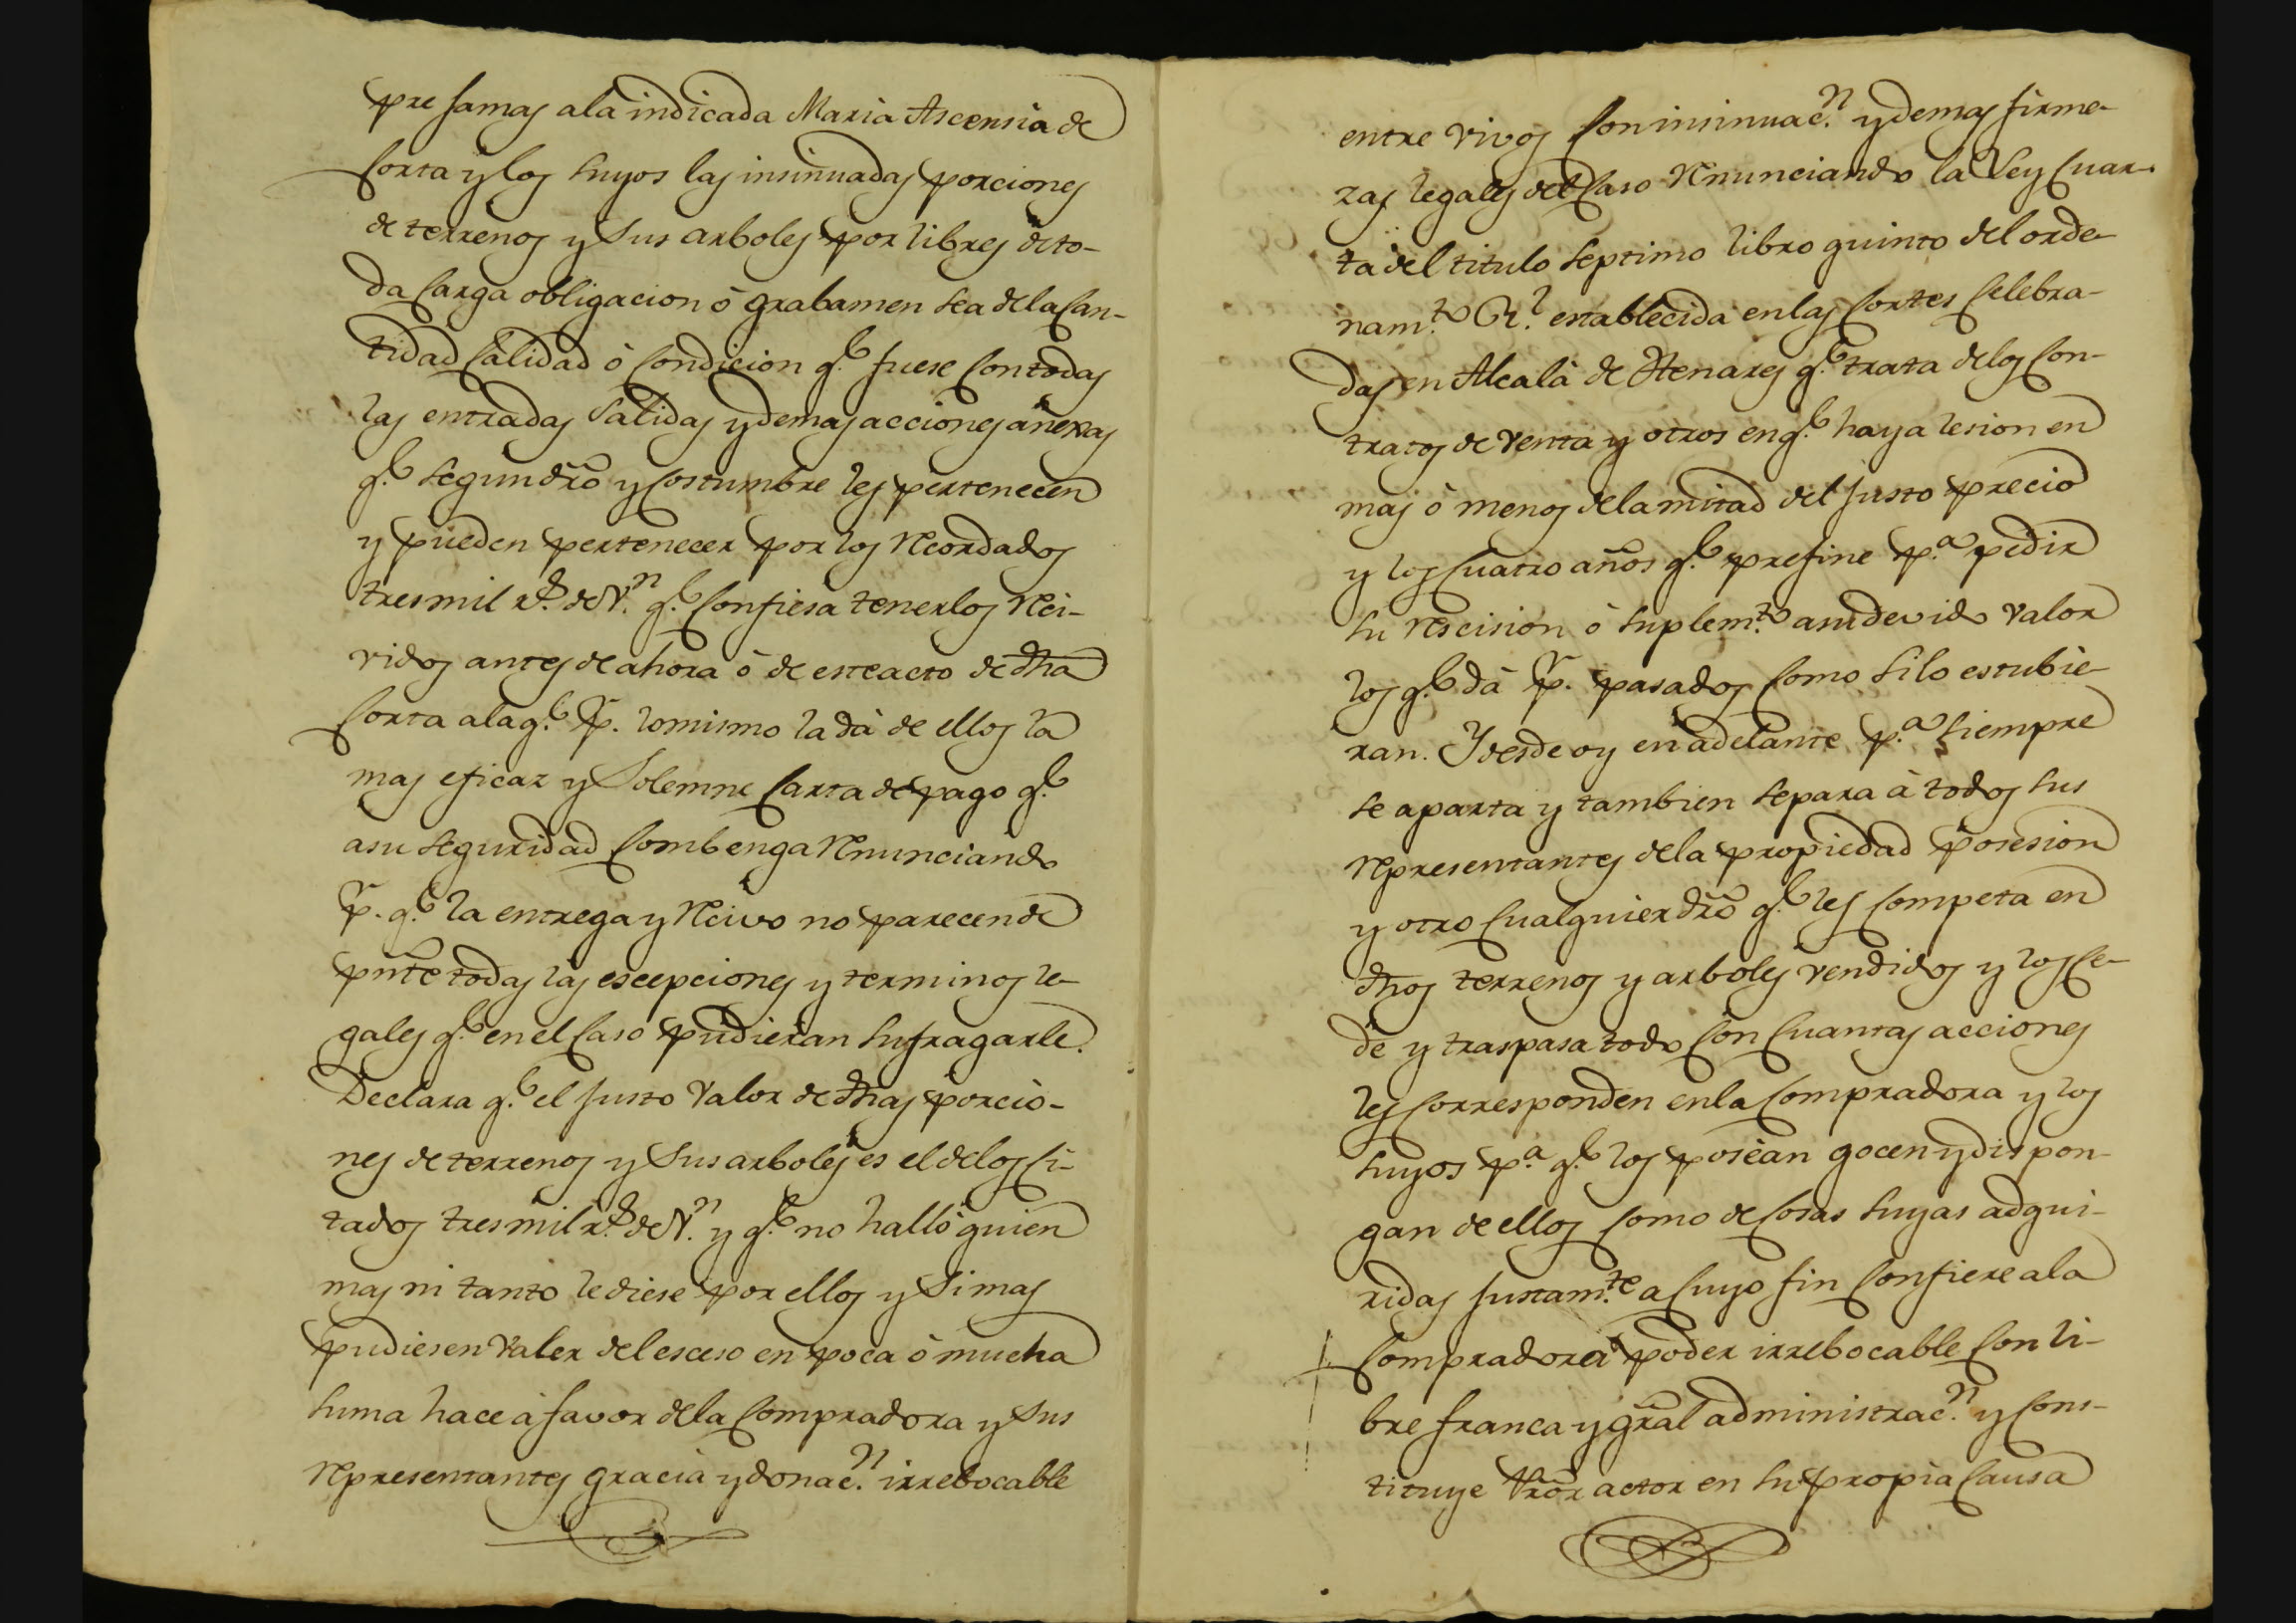 pre jamas ala indicada Maria Ascensia de
Corta y los suyos las insinuadas porciones
de terrenos y sus arboles por libres de to-
da Carga obligacion ó grabamen sea dela Can-
tidad Calidad ó Condicion q.e fuese Con todas
las entradas Salidas y demas acciones anexas
q.e segun dro y Costumbre les pertenecen
y pueden pertenecer por los Recordados
tres mil r.s de V.n q.e Confiesa tenerlos Reci-
vidos antes de ahora ó de este acto de dha
Corta ala q.e p.r lo mismo la dá de ellos la
mas eficaz y Solemne Carta de pago q.e
a su seguridad Combenga Renunciando
p.r q.e la entrega y Recivo no parecen de
pnte todas las escepciones y terminos le-
gales q.e en el Caso pudieran sufragarle.
Declara q.e el justo Valor de dhas porcio-
nes de terrenos y Sus arboles es el delos Ci-
tados tres mil r.s de V.n y q.e no halló quien
mas ni tanto le diese por ellos y Si mas
pudiesen Valer del esceso en poca ó mucha
suma hace á favor dela Compradora y Sus
Representantes gracia y donac.n irrebocable
entre vivos Con insinuac.n y demas firme-
zas legales del Caso Renunciando la Ley Cuar-
ta del titulo septimo libro quinto del orde-
nam.to R.l establecida en las Cortes Celebra-
das en Alcalá de Henares q.e trata delos Con-
tratos de Venta y otros en q.e haya lesion en
mas ó menos dela mitad del justo precio
y los Cuatro años q.e prefine p.a pedir
su Rescision ó suplem.to a su devido Valor
los q.e dá p.r pasados Como si lo estubie-
ran. Y desde oy en adelante p.a siempre
se aparta y tambien separa á todos sus
Representantes dela propiedad posesion
y otro Cualquier dro q.e les Competa en
dhos terrenos y arboles vendidos y los Ce-
de y traspasa todo Con Cuantas acciones
les Corresponden en la Compradora y los
suyos p.a q.e los posean gocen y dispon-
gan de ellos Como de Cosas suyas adqui-
ridas justam.te a Cuyo fin Confiere ala
Compradora poder irrebocable Con li-
bre franca y gral administrac.n y Cons-
tituye Pror actor en su propia Causa